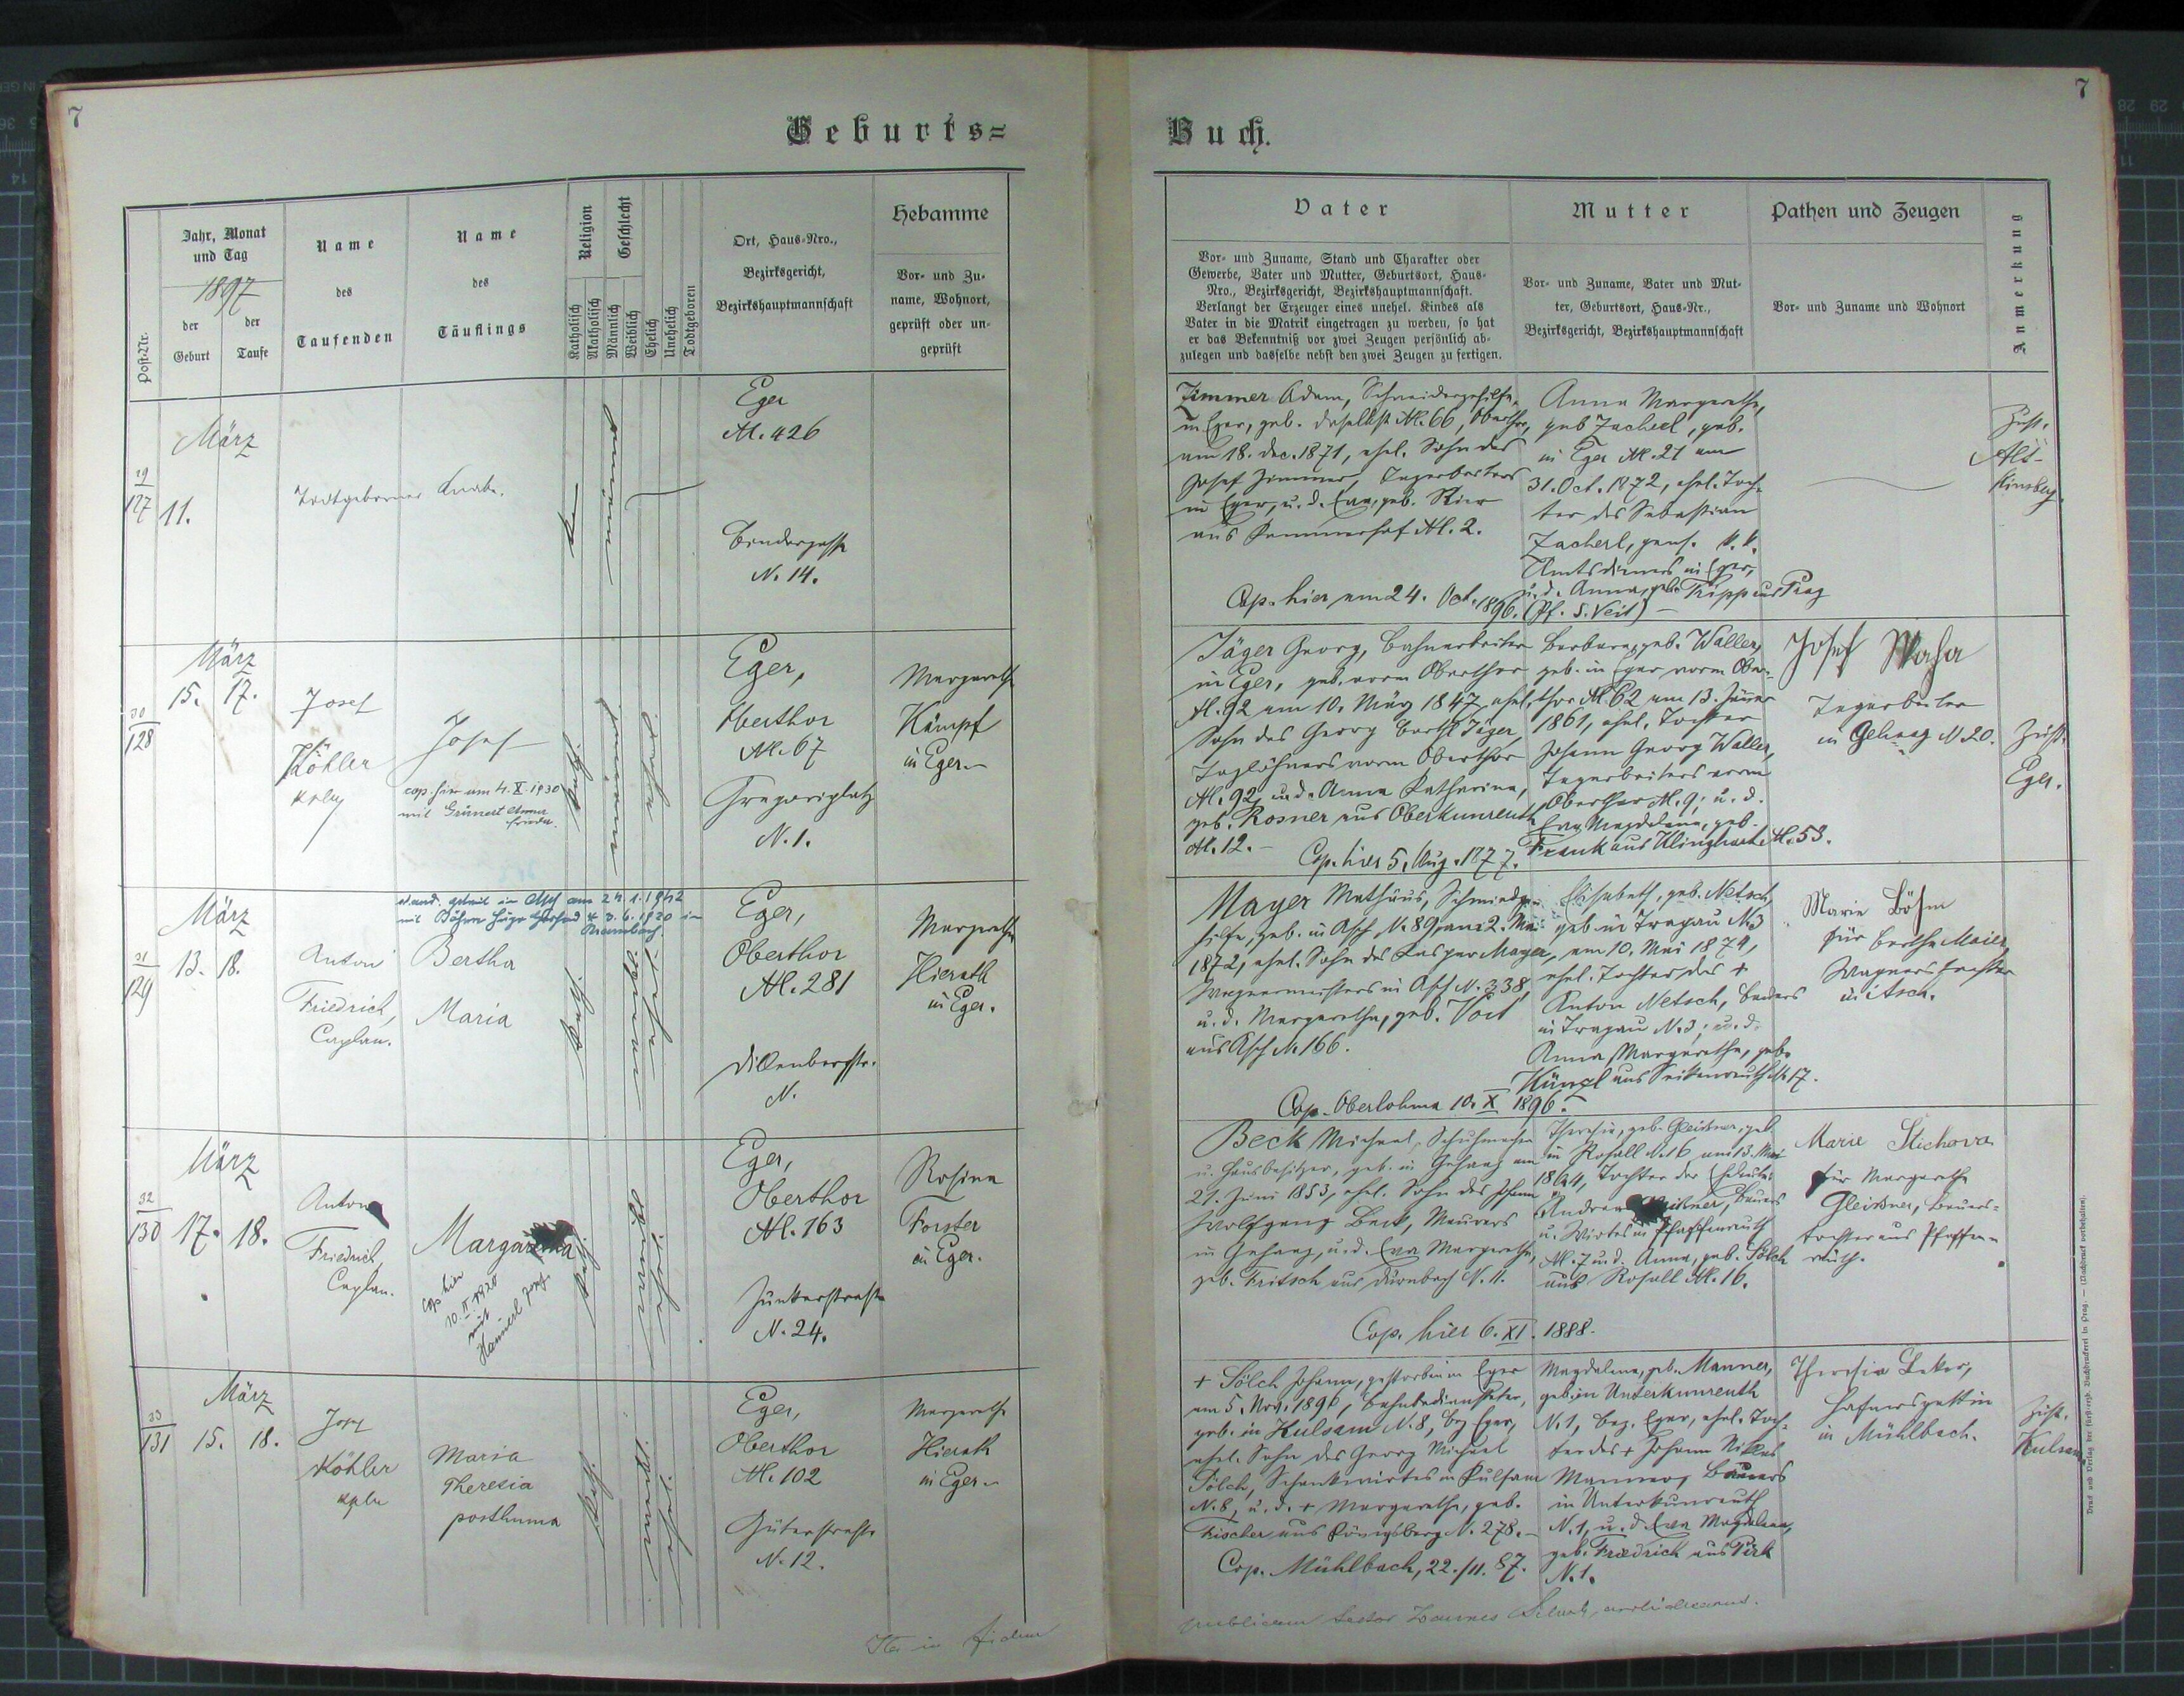 7
Geburts=
Post-Nr.
Jahr, Monat
und Tag
1897
der
Geburt
der
Taufe
Name
des
Taufenden
Name
des
Täuflings
Religion
Katholisch
Akatholisch
Geschlecht
Männlich
Weiblich
Ehelich
Unehelich
Todtgeboren
Ort, Haus-Nro.,
Bezirksgericht,
Bezirkshauptmannschaft
Hebamme
Vor- und Zu-
name, Wohnort,
geprüft oder un-
geprüft
29
127
März
11.
Todtgeborner Knabe.
Eger
N. 426
Bindergasse
N. 14.
30
128
März
15. 17.
Josef
Köhler
Kpl
Josef
cop. hier am 4. X. 1930
mit Grünert
Eger,
Oberthor
N. 67
Gregoriplatz
N. 1.
Margareth
Kämpf
in Eger.
31
129
März
13. 18.
Anton
Friedrich,
Caplan.
in Asch am 24.1.1942
mit 3.6.1920 in
Bertha
Maria
Eger,
Oberthor
N. 281
Dillenbergstr.
N.
Margareth
Hierath
in Eger.
32
130
März
17. 18.
Anton
Friedrich,
Caplan.
Margaretha
Cop. hier
10. II. 1920
mit
Eger,
Oberthor
N. 163
Junkerstraße
N. 24.
Rosina
Forster
in Eger.
33
131
März
15. 18.
Josef
Köhler
Kpl
Maria
Theresia
posthuma
Eger,
Oberthor
N. 102
Güterstraße
N. 12.
Margareth
Hierath
in Eger.
Ita in fidem
7
Buch.
Vater
Vor- und Zuname, Stand und Charakter oder
Gewerbe, Vater und Mutter, Geburtsort, Haus-
Nro., Bezirksgericht, Bezirkshauptmannschaft.
Verlangt der Erzeuger eines unehel. Kindes als
Vater in die Matrik eingetragen zu werden, so hat
er das Bekenntniß vor zwei Zeugen persönlich ab-
zulegen und dasselbe nebst den zwei Zeugen zu fertigen.
Mutter
Vor- und Zuname, Vater und Mut-
ter, Geburtsort, Haus-Nr.,
Bezirksgericht, Bezirkshauptmannschaft
Pathen und Zeugen
Vor- und Zuname und Wohnort
Anmerkung
Zimmer Adam, Schneidergehilfe
in Eger, geb. daselbst N. 66, Oberthor,
am 18. Dec. 1871, ehel. Sohn des
Josef Zimmer, Tagarbeiters
in Eger, u. d. Eva, geb.
aus Kammerhof N. 2.
Cop. hier am 24. Oct. 1896.
Anna Margaretha,
geb. Zacherl, geb.
in Eger N. 21 am
31. Oct. 1872, ehel. Toch-
ter des Sebastian
Zacherl, pens. k. k.
Amtsdieners in Eger,
u. d. Anna, geb. Tripp aus Prag
(Pf. S. Veit)
Zust.
Alt-
Kinsberg.
Jäger Georg, Bahnarbeiter
in Eger, geb. vorm Oberthor
N. 92 am 10. März 1847, ehel.
Sohn des Georg Barthl Jäger,
Taglöhners vorm Oberthor
N. 92, u. d. Anna Katharina,
geb. Rosner aus Oberkunreuth
N. 12.
Cop. hier 5. Aug. 1877.
Barbara, geb. Waller,
geb. in Eger vorm Ober-
thor N. 62 am 13. Jäner
1861, ehel. Tochter
Johann Georg Waller,
Tagarbeiters vorm
Oberthor N. 9, u. d.
Eva Magdalena, geb.
Frank aus Klinghart N. 53.
Josef Maha
Tagarbeiter
in Gehaag N. 20.
Zust.
Eger.
Mayer Mathäus, Schmiedge-
hilfe, geb. in Asch N. 89, am 2. Mai
1872, ehel. Sohn des Kaspar Mayer,
Wagnermeisters in Asch N. 338,
u. d. Margaretha, geb. Voit
aus Asch N. 166.
Cop. Oberlohma 10. X. 1896.
Elisabeth, geb. Netsch,
geb. in Tragau N. 3
am 10. Mai 1874,
ehel. Tochter des +
Anton Netsch, Bauers
in Tragau N. 3, u. d.
Anna Margaretha, geb.
Künzl aus Seikenreuth N. 17.
Marie Böhm
für Bertha Maier,
Wagnerstochter
in Asch.
Beck Michael, Schuhmacher
u. Hausbesitzer, geb. in Gehaag am
21. Juni 1853, ehel. Sohn des Johann
Wolfgang Beck, Maurers
in Gehaag, u. d. Eva Margareth,
geb. Fritsch aus Dürnbach N. 11.
Cop. hier 6. XI. 1888.
Theresia, geb. Gleißner, geb.
in Rosall N. 16 am 13. Mai
1864, Tochter der Eheleute
Andreas Gleißner, Bauers
u. Wirtes in Pfaffenreuth
N. 7 u. d. Anna, geb. Sölch
aus Rosall N. 16.
Marie Stichova
für Margaretha
Gleißner, Bauers-
tochter aus Pfaffen-
reuth.
+ Sölch Johann, gestorben in Eger
am 5. Nov. 1896, Bahnbediensteter,
geb. in Kulsam N. 8, Bez. Eger,
ehel. Sohn des Georg Michael
Sölch, Schankwirtes in Kulsam
N. 8, u. d. + Margaretha, geb.
Fischer aus Königsberg N. 278.
Cop. Mühlbach, 22./11. 87.
Magdalena, geb. Manner,
geb. in Unterkunreuth
N. 1, Bez. Eger, ehel. Toch-
ter des + Johann Niklas
Manner, Bauers
in Unterkunreuth
N. 1, u. d. Eva Magdalena,
geb. Friedrich aus Pirk
N. 1.
Theresia
Hafnersgattin
in Mühlbach.
Zust.
Kulsam
publicam testor Joannes
Druck und Verlag der fürst-erzb. Buchdruckerei in Prag. — (Nachdruck vorbehalten).